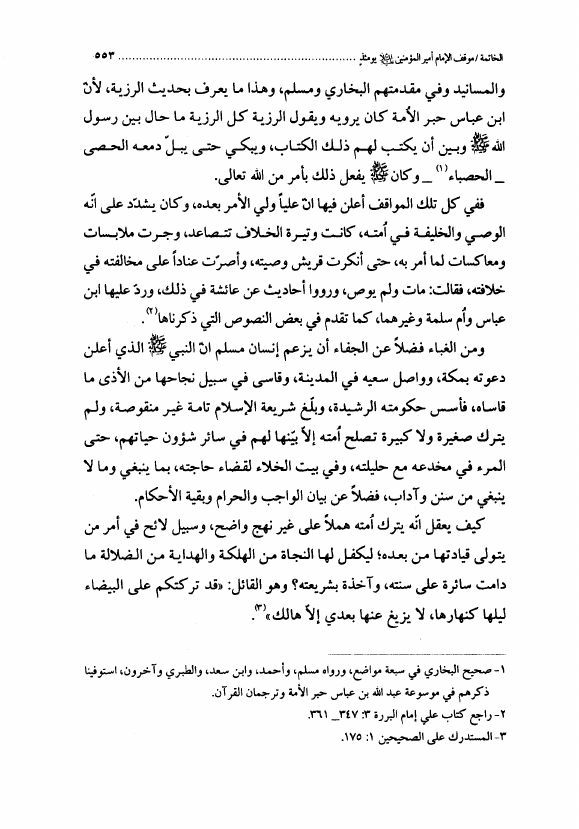 الخاتمة / موقف الإمام أمير المؤمنين ﷺ يومئذٍ ............................................................ ٥٥٣
والمسانيد وفي مقدمتهم البخاري ومسلم، وهذا ما يعرف بحديث الرزية، لأنّ
ابن عباس حبر الأمة كان يرويه ويقول الرزية كل الرزية ما حال بين رسول
الله ﷺ وبين أن يكتب لهم ذلك الكتاب، ويبكي حتى يبلّ دمعه الحصى
_ الحصباء(١) _ وكان ﷺ يفعل ذلك بأمر من الله تعالى.
ففي كل تلك المواقف أعلن فيها انّ علياً ولي الأمر بعده، وكان يشدّد على انّه
الوصي والخليفة في اُمته، كانت وتيرة الخلاف تتصاعد، وجرت ملابسات
ومعاكسات لما أمر به، حتى أنكرت قريش وصيته، وأصرّت عناداً على مخالفته في
خلافته، فقالت: مات ولم يوص، ورووا أحاديث عن عائشة في ذلك، وردّ عليها ابن
عباس واُم سلمة وغيرهما، كما تقدم في بعض النصوص التي ذكرناها(٢).
ومن الغباء فضلاً عن الجفاء أن يزعم إنسان مسلم انّ النبي ﷺ الذي أعلن
دعوته بمكة، وواصل سعيه في المدينة، وقاسى في سبيل نجاحها من الأذى ما
قاساه، فأسس حكومته الرشيدة، وبلّغ شريعة الإسلام تامة غير منقوصة، ولم
يترك صغيرة ولا كبيرة تصلح اُمته إلاّ بيّنها لهم في سائر شؤون حياتهم، حتى
المرء في مخدعه مع حليلته، وفي بيت الخلاء لقضاء حاجته، بما ينبغي وما لا
ينبغي من سنن وآداب، فضلاً عن بيان الواجب والحرام وبقية الأحكام.
كيف يعقل انّه يترك اُمته هملاً على غير نهج واضح، وسبيل لائح في أمر من
يتولى قيادتها من بعده؛ ليكفل لها النجاة من الهلكة والهداية من الضلالة ما
دامت سائرة على سنته، وآخذة بشريعته؟ وهو القائل: «قد تركتكم على البيضاء
ليلها كنهارها، لا يزيغ عنها بعدي إلاّ هالك»(٣).
١- صحيح البخاري في سبعة مواضع، ورواه مسلم، وأحمد، وابن سعد، والطبري وآخرون، استوفينا
ذكرهم في موسوعة عبد الله بن عباس حبر الأمة وترجمان القرآن.
٢- راجع كتاب علي إمام البررة ٣: ٣٤٧_ ٣٦١.
٣- المستدرك على الصحيحين ١: ١٧٥.